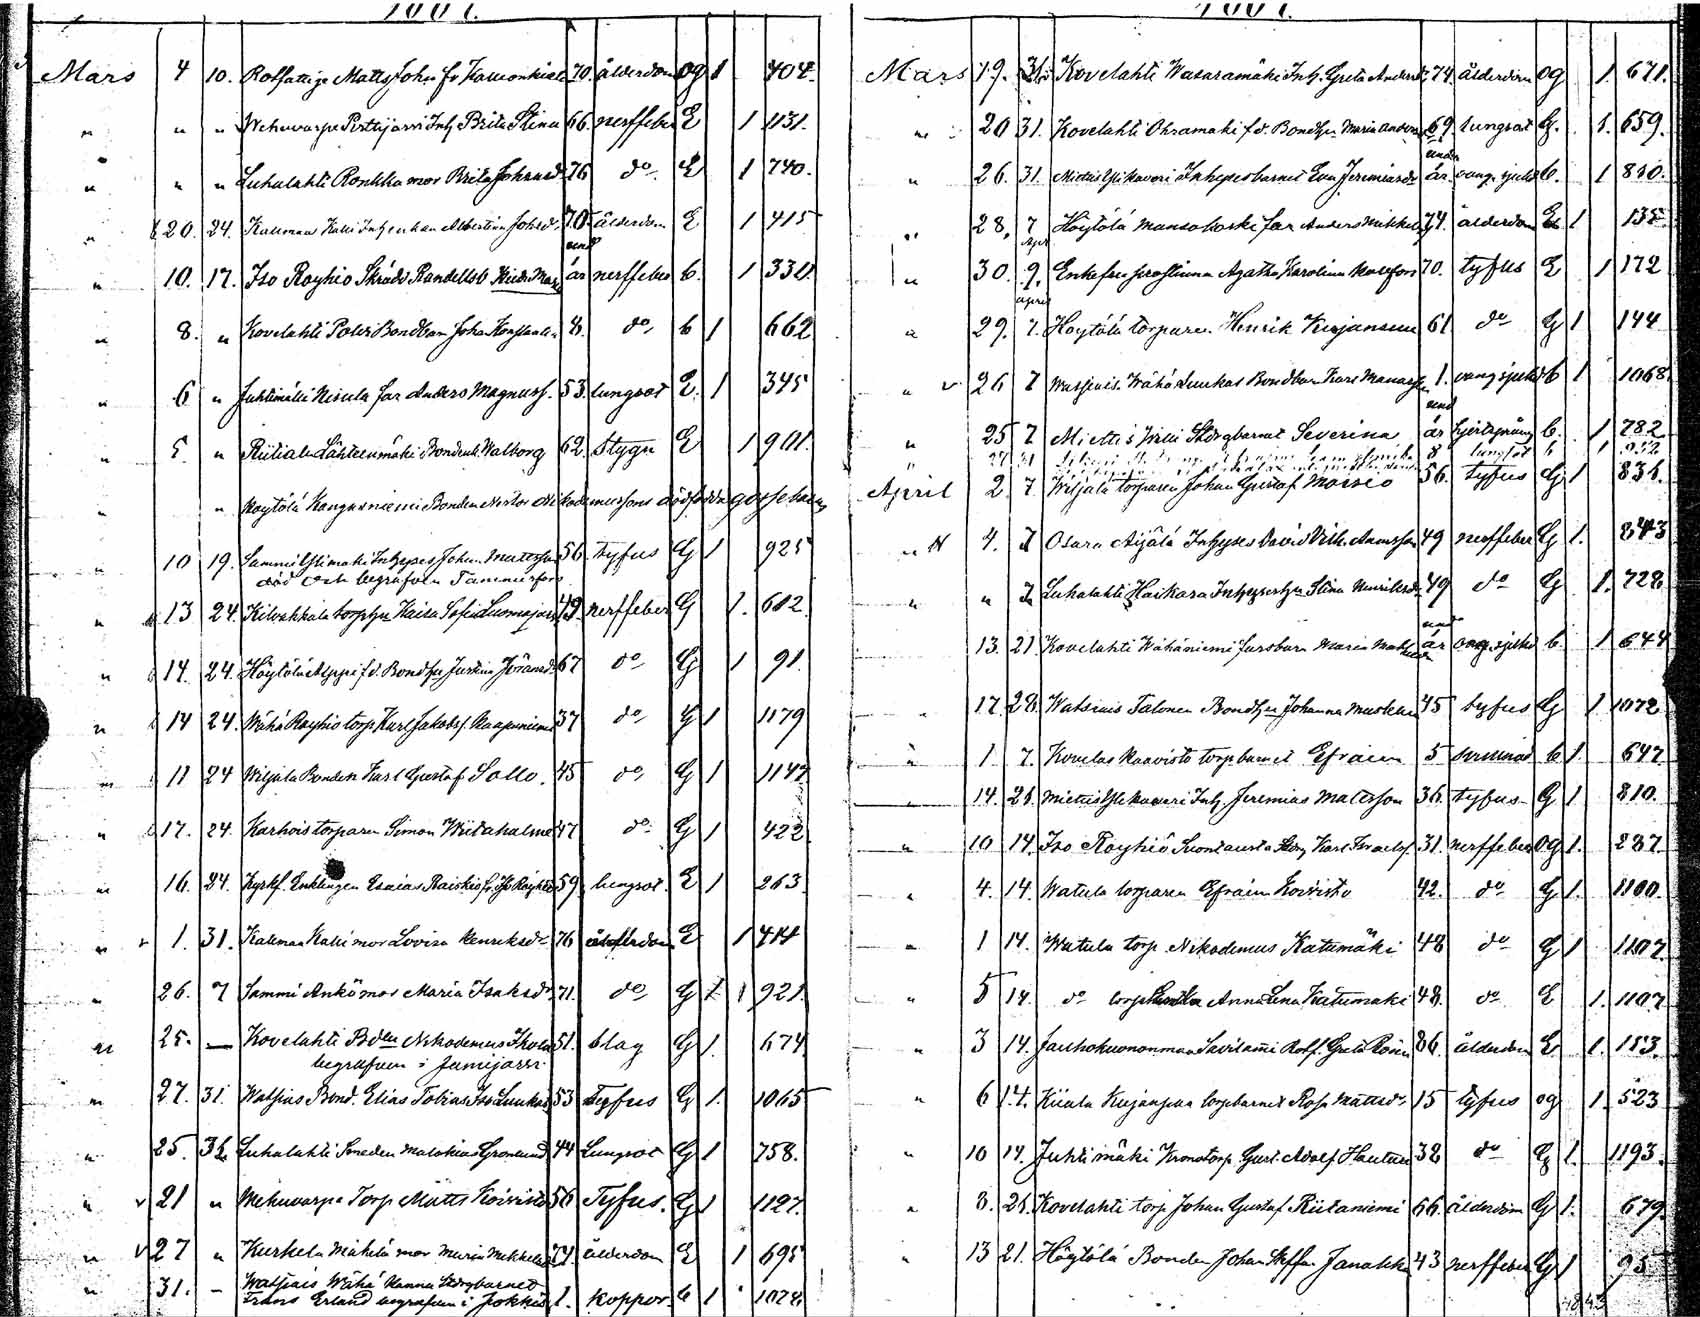 Mars 4 10. Rotfattige Matts Joh. fr Kalmonkiela 70. ålderdom og 1 404
" " " Wehuwarpe Perttyjarvi Inh Brita Stina 66. nerffeber E 1 1131.
" " " Luhalahti Ronkka mor Brita Johansd. 76 do E 1 740.
" 20. 24. Kallmaa Kalli Inh enkan Albertina Johsd. 70. ålderdom E 1 415
" 10. 17. Iso Röyhiö Skrädd Randells b und år nerffeber b. 1 330
" 8. " Kovelahti Bondbarn Johan 8. do b 1 662
" 6 " Juhtimäki Nisula far Anders Magnusf. 53. lungsot E. 1 345
" 5. " Riitiala Lähteenmäki Bondenk. Walborg 62. Stygn E 1 901.
" Höytölä Kangasniemi Bonden Nestor Nikodemussons dödfödda gossebarn
" 10 19. Sammi Ylimäki Inhyses Johan Mattsson 56. Tyfus G 1 925
död och begrafven Tammerfors
" 13 24. Kilvakkala torphu Kaisa Sofia 49. nerffeber G 1. 612
" 14. 24. Höytölä Seppi f.d. Bondhu Justina Joransd. 67 do G 1 91.
" 14 24. Wähä Röyhiö torp Karl Jakobsf. Kaapuniemi 37 do G 1 1179
" 11 24 Wiljala Bonden Karl Gustaf Sallo. 45 do G 1 1147
" 17. 24. Karhois torparen Simon Wiitahalme 47 do G 1 422
" 16. 24. Kyrkf. Enklingen Esaias Raiskio fr Iso Röyhiö 59 lungsot. E 1 263
" 1. 31. Kallmaa Kalli mor Lovisa Henriksdr 76 ålderdom E 1 414
" 26. 7 Sammi Ankö mor Maria Isaksdr 71. do G 1 921.
" 25. — Kovelahti Bden Nikodemus 51. slag G 1. 674
begrafven i Jämijärvi
" 27. 31. Watsiais Bond. Elias Tobias Iso Luukas 53 Tyfus G 1. 1065
" 25. 31. Luhalahti Smeden Malakias Grönlund 44 Lungsot G 1 758.
" 21 " Wehuvarpe Torp Matts Koivisto 56 Tyfus. G 1 1127.
" 27 " Kurkela Mäkelä mor Maria Mikkelsd 71 ålderdom E 1 695
" 31. — Watsiais Wähä Hannu Storpbarnet
Frans Erland begrafven i Jokkis 1. koppor. b 1 1028
Mars 19. 31. Kovelahti Wasaramäki Inh. Greta Andersdr 74. ålderdom og 1. 671.
" 20 31. Kovelahti Ohramäki f.d. Bondhu Maria Andersd 69. lungsot G. 1. 659.
" 26. 31. Miettis Ylikoveri Inhysesbarnet Eva Jeremiasdr und år. vanl. sjukd b. 1 810.
" 28, 7 Apr Höytölä Mansokoski far Anders Mikkelsf 74. ålderdom E 1 135
" 30. 9. April Enkefru prostinna Agatha Karolina 70. tyfus E 1 172
" 29. 7. Höytölä torparen Henrik Kurjansuu 61 do G 1 144
" 26 7 Watsiais. Wähä Luukas Bondbarn Karl Manasse 1. vanl sjukd b 1 1068.
" 25 7 Miettis Storpbarnet Severina und år b. 1 782
April 2. 7. Wiljala torparen Johan Gustaf Moisio 56. tyfus G 1 834.
" 4. 7 Osara Äijälä Inhyses David Vilh. 49 nerffeber G 1. 843
" " 7 Luhalahti Haikara Inhyseshu Stina Henriksd. 49 do G 1. 728
13. 21. Kovelahti Wähäniemi Maria und år vanl. sjukd b. 1 644
17. 28. Watsiais Talonen Bondhu Johanna 45 tyfus G 1 1072
" 1 7. Kovelax Kaavisto torpbarnet Efraim 5 b 1. 647
" 14. 21. Miettis Ylikoveri Inh. Jeremias Matsson 36. tyfus G 1 810.
" 10 14. Iso Röyhiö Suontausta Storp Karl Israelsf. 31. nerffeber og 1. 287.
" 4. 14. Watula torparen Efraim Koivisto 42. do G 1. 1100.
" 1 14. Watula torp. Nikodemus Katumäki 48 do G 1 1107
" 5 14. do Anna Lena Katumäki 48. do E 1. 1107
" 3 14. Savilami Rotf. Greta 86. ålderdom E 1. 153.
" 6 14. Kiiala Kurjanpää torpbarnet Rosa Mattsdr 15 tyfus og 1. 523
" 10 14. Juhtimäki Kronotorp. Gust. Adolf Hautanen 32 do G 1. 1193.
" 8. 21. Kovelahti torp Johan Gustaf Riitaniemi 66. ålderdom G 1. 679.
" 13 21. Höytölä Bonden Johan Steffan Janakka 43 nerffeber G 1 95
1843